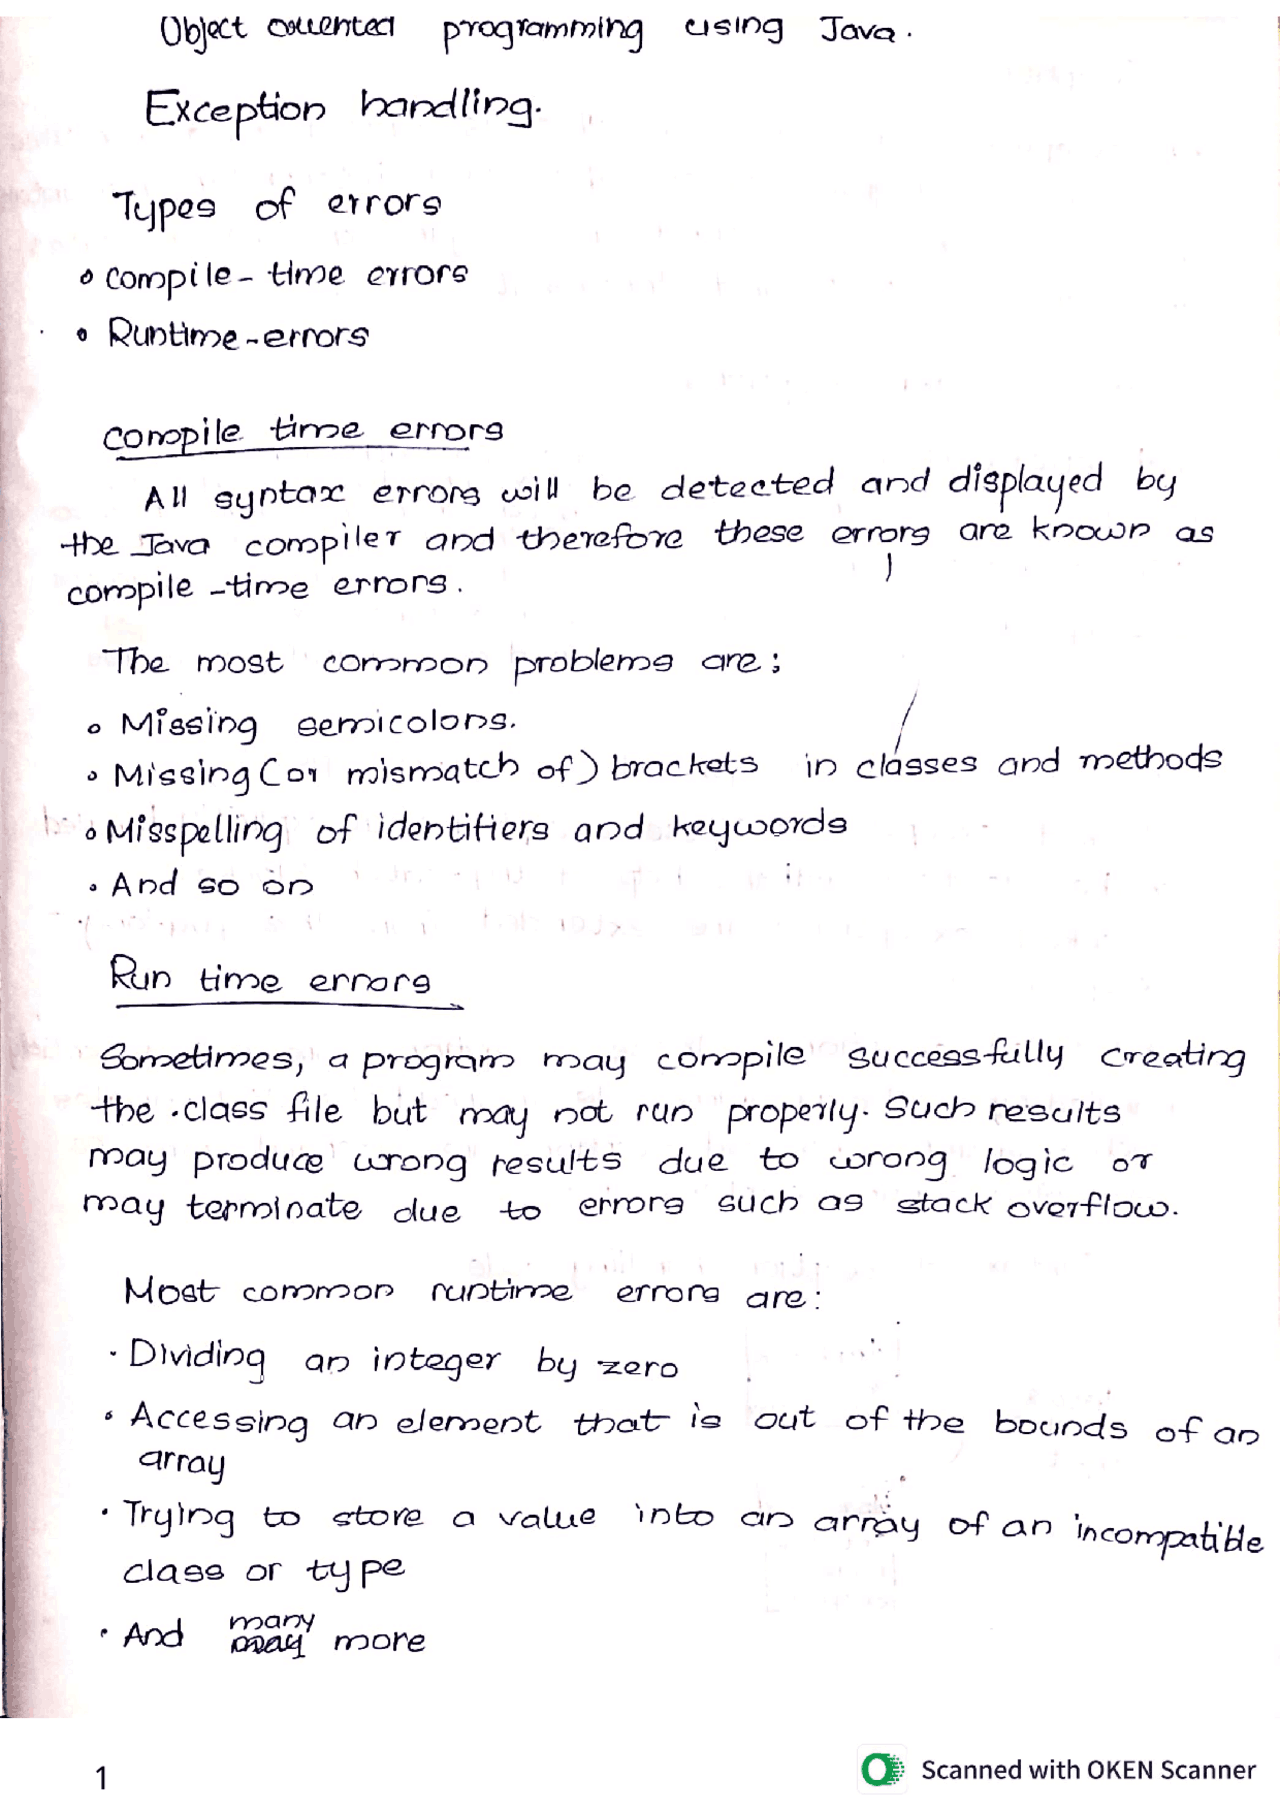 Object oriented programming using Java.
Exception handling.
Types of errors
• compile-time errors
• Runtime-errors
compile time errors
All syntax errors will be detected and displayed by
the Java compiler and therefore these errors are known as
compile-time errors.
The most common problems are;
• Missing semicolons.
• Missing (or mismatch of) brackets in classes and methods
• Misspelling of identifiers and keywords
• And so on
Run time errors
Sometimes, a program may compile successfully creating
the .class file but may not run properly. Such results
may produce wrong results due to wrong logic or
may terminate due to errors such as stack overflow.
Most common runtime errors are:
• Dividing an integer by zero
• Accessing an element that is out of the bounds of an
array
• Trying to store a value into an array of an incompatible
class or type
many
• And may more
1
Scanned with OKEN Scanner